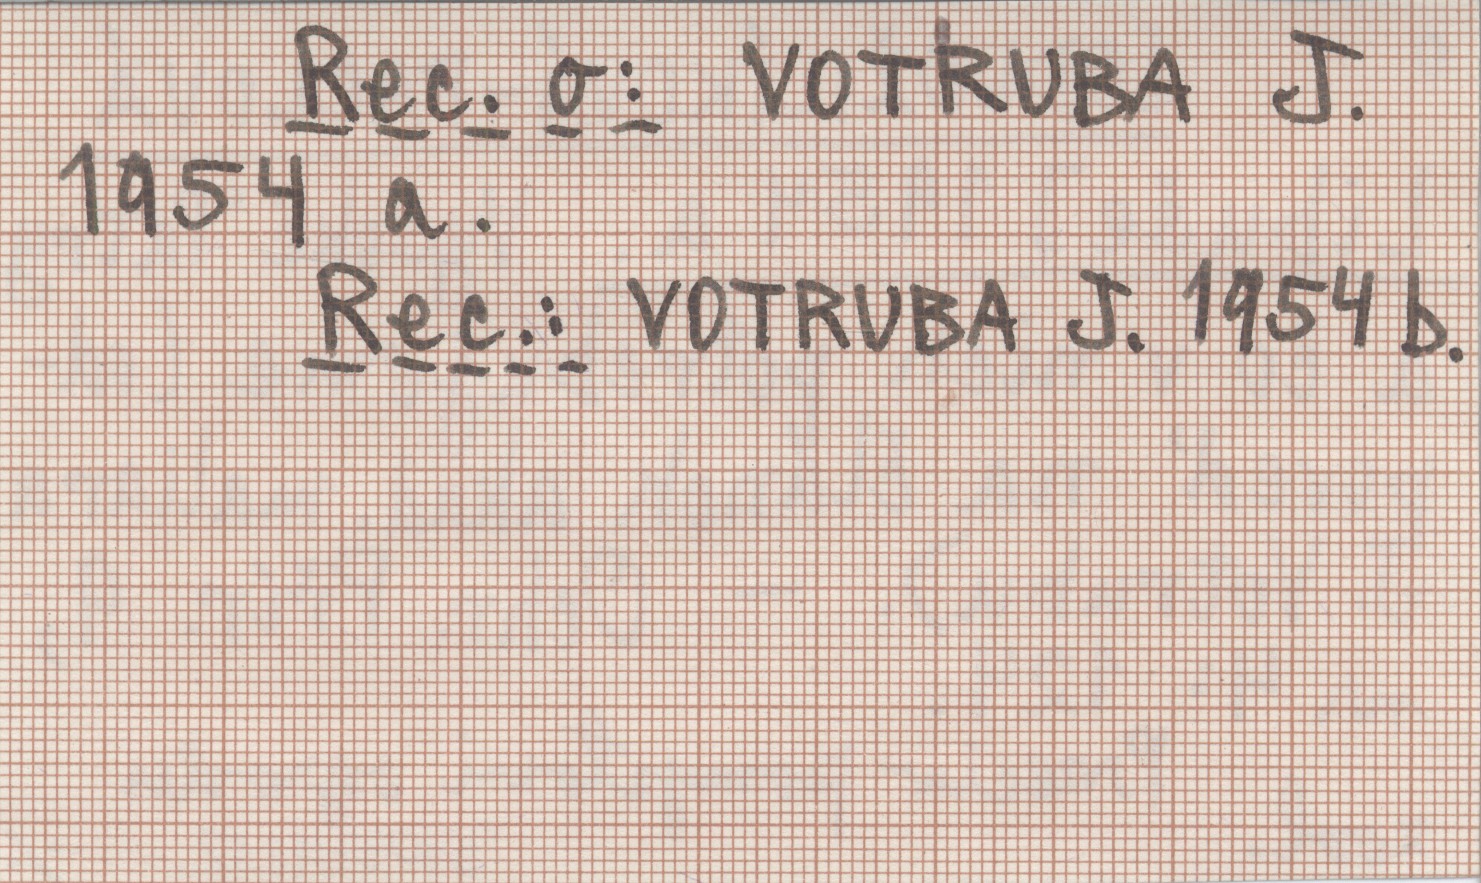 Rec. o: VOTRUBA J.
1954 a.
Rec.: VOTRUBA J. 1954 b.